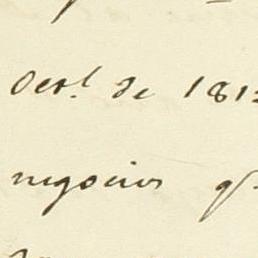 Oct.l de 181
negocios q